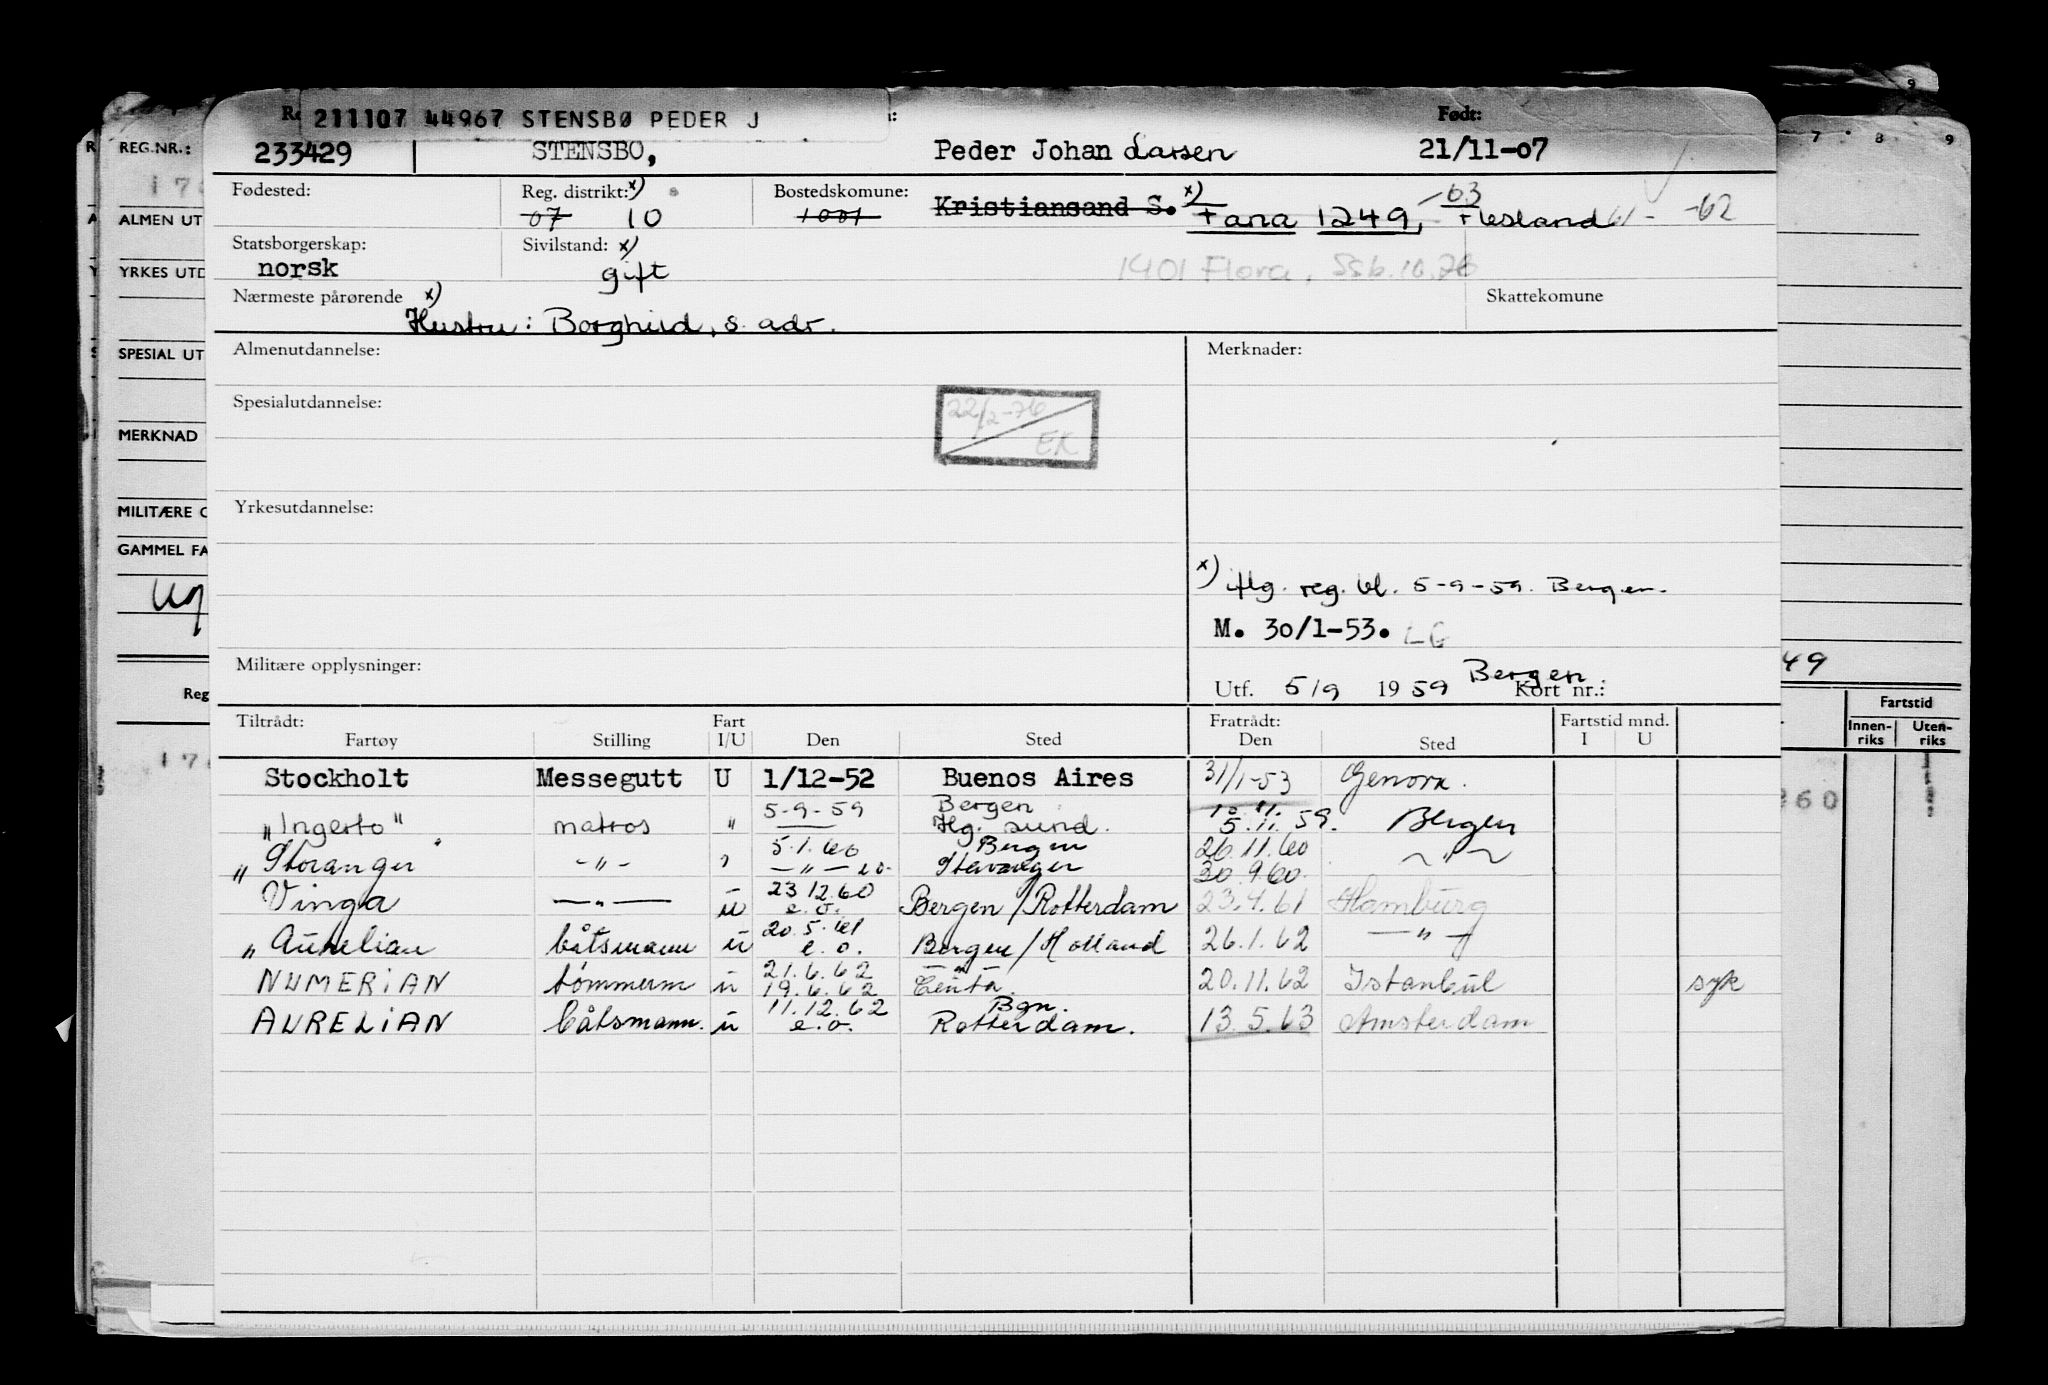 211107 44967 STENSBØ PEDER J
Født:
233429 STENSBO, Peder Johan Larsen 21/11-07
Fødested: Reg. distrikt: x) Bostedskomune: Kristiansand S. x) 63
07 10 1001 Fana 1249, Flesland 61- -62
Statsborgerskap: Sivilstand: x)
norsk gift 1401 Flora, Ssb. 10.76
Nærmeste pårørende x) Skattekomune
Hustru: Borghild, s. adr.
Almenutdannelse: Merknader:
Spesialutdannelse: 22/2-76
EK
Yrkesutdannelse:
x) iflg. reg. bl. 5-9-59. Bergen.
M. 30/1-53. LG
Militære opplysninger: Bergen
Utf. 5/9 1959 Kort nr.:
Tiltrådt: Fart Fratrådt: Fartstid mnd.
Fartøy Stilling I/U Den Sted Den Sted I U
Stockholt Messegutt U 1/12-52 Buenos Aires 31/1-53 Genova.
5-9-59 Bergen 10.11.
"Ingerto" matros " Hg. sund. 5.11.59. Bergen
5.1.60 Bergen 26.11.60
"Storanger" -"- " -"- e.o. Stavanger 30.9.60. -"-
Vinga -"- u 23.12.60 e.o. Bergen/Rotterdam 23.4.61 Hamburg
"Aurelian båtsmann u 20.5.61 e.o. Bergen/Holland 26.1.62 -"-
21.6.62 -"-
NUMERIAN tømmerm u 19.6.62 Ceuta. 20.11.62 Istanbul syk
11.12.62 Bgn.
AURELIAN båtsmann. u e.o. Rotterdam. 13.5.63 Amsterdam
REG.NR.:
ALMEN UT
YRKES UTD
SPESIAL UT
MERKNAD
MILITÆRE
GAMMEL FA
Reg
7 8 9
9
49
Fartstid
Innen-
riks
Uten-
riks